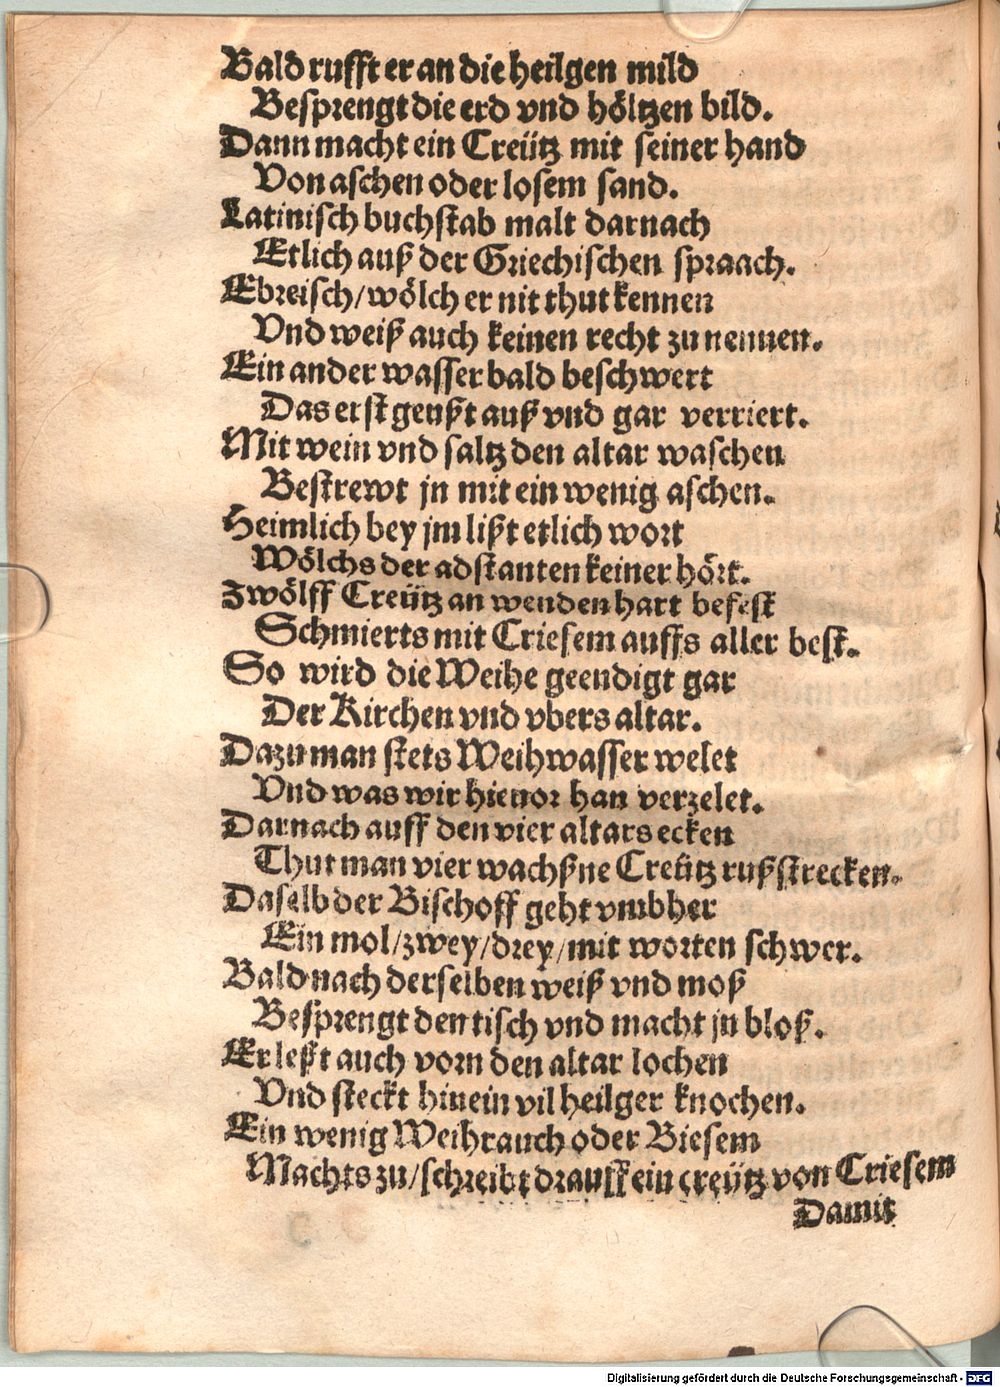 Bald rufft er an die heilgen mild
Besprengt die erd vnd höltzen bild.
Dann macht ein Creütz mit seiner hand
Von aschen oder losem sand.
Latinisch buchstab malt darnach
Etlich auß der Griechischen spraach.
Ebreisch/wölch er nit thut kennen
Vnd weiß auch keinen recht zu nennen.
Ein ander wasser bald beschwert
Das erst geußt auß vnd gar verriert.
Mit wein vnd saltz den altar waschen
Bestrewt jn mit ein wenig aschen.
Heimlich bey jm lißt etlich wort
Wölchs der adstanten keiner hört.
Zwölff Creütz an wenden hart befest
Schmierts mit Criesem auffs aller best.
So wird die Weihe geendigt gar
Der Kirchen vnd vbers altar.
Dazu man stets Weihwasser welet
Vnd was wir hieuor han verzelet.
Darnach auff den vier altars ecken
Thut man vier wachßne Creütz rußstrecken.
Daselb der Bischoff geht vmbher
Ein mol/zwey/drey/mit worten schwer.
Bald nach derselben weiß vnd moß
Besprengt den tisch vnd macht jn bloß.
Er leßt auch vorn den altar lochen
Vnd steckt hinein vil heilger knochen.
Ein wenig Weihrauch oder Biesem
Machts zu/schreibt drauff ein creütz von Criesem
Damit
Digitalisierung gefördert durch die Deutsche Forschungsgemeinschaft - DFG